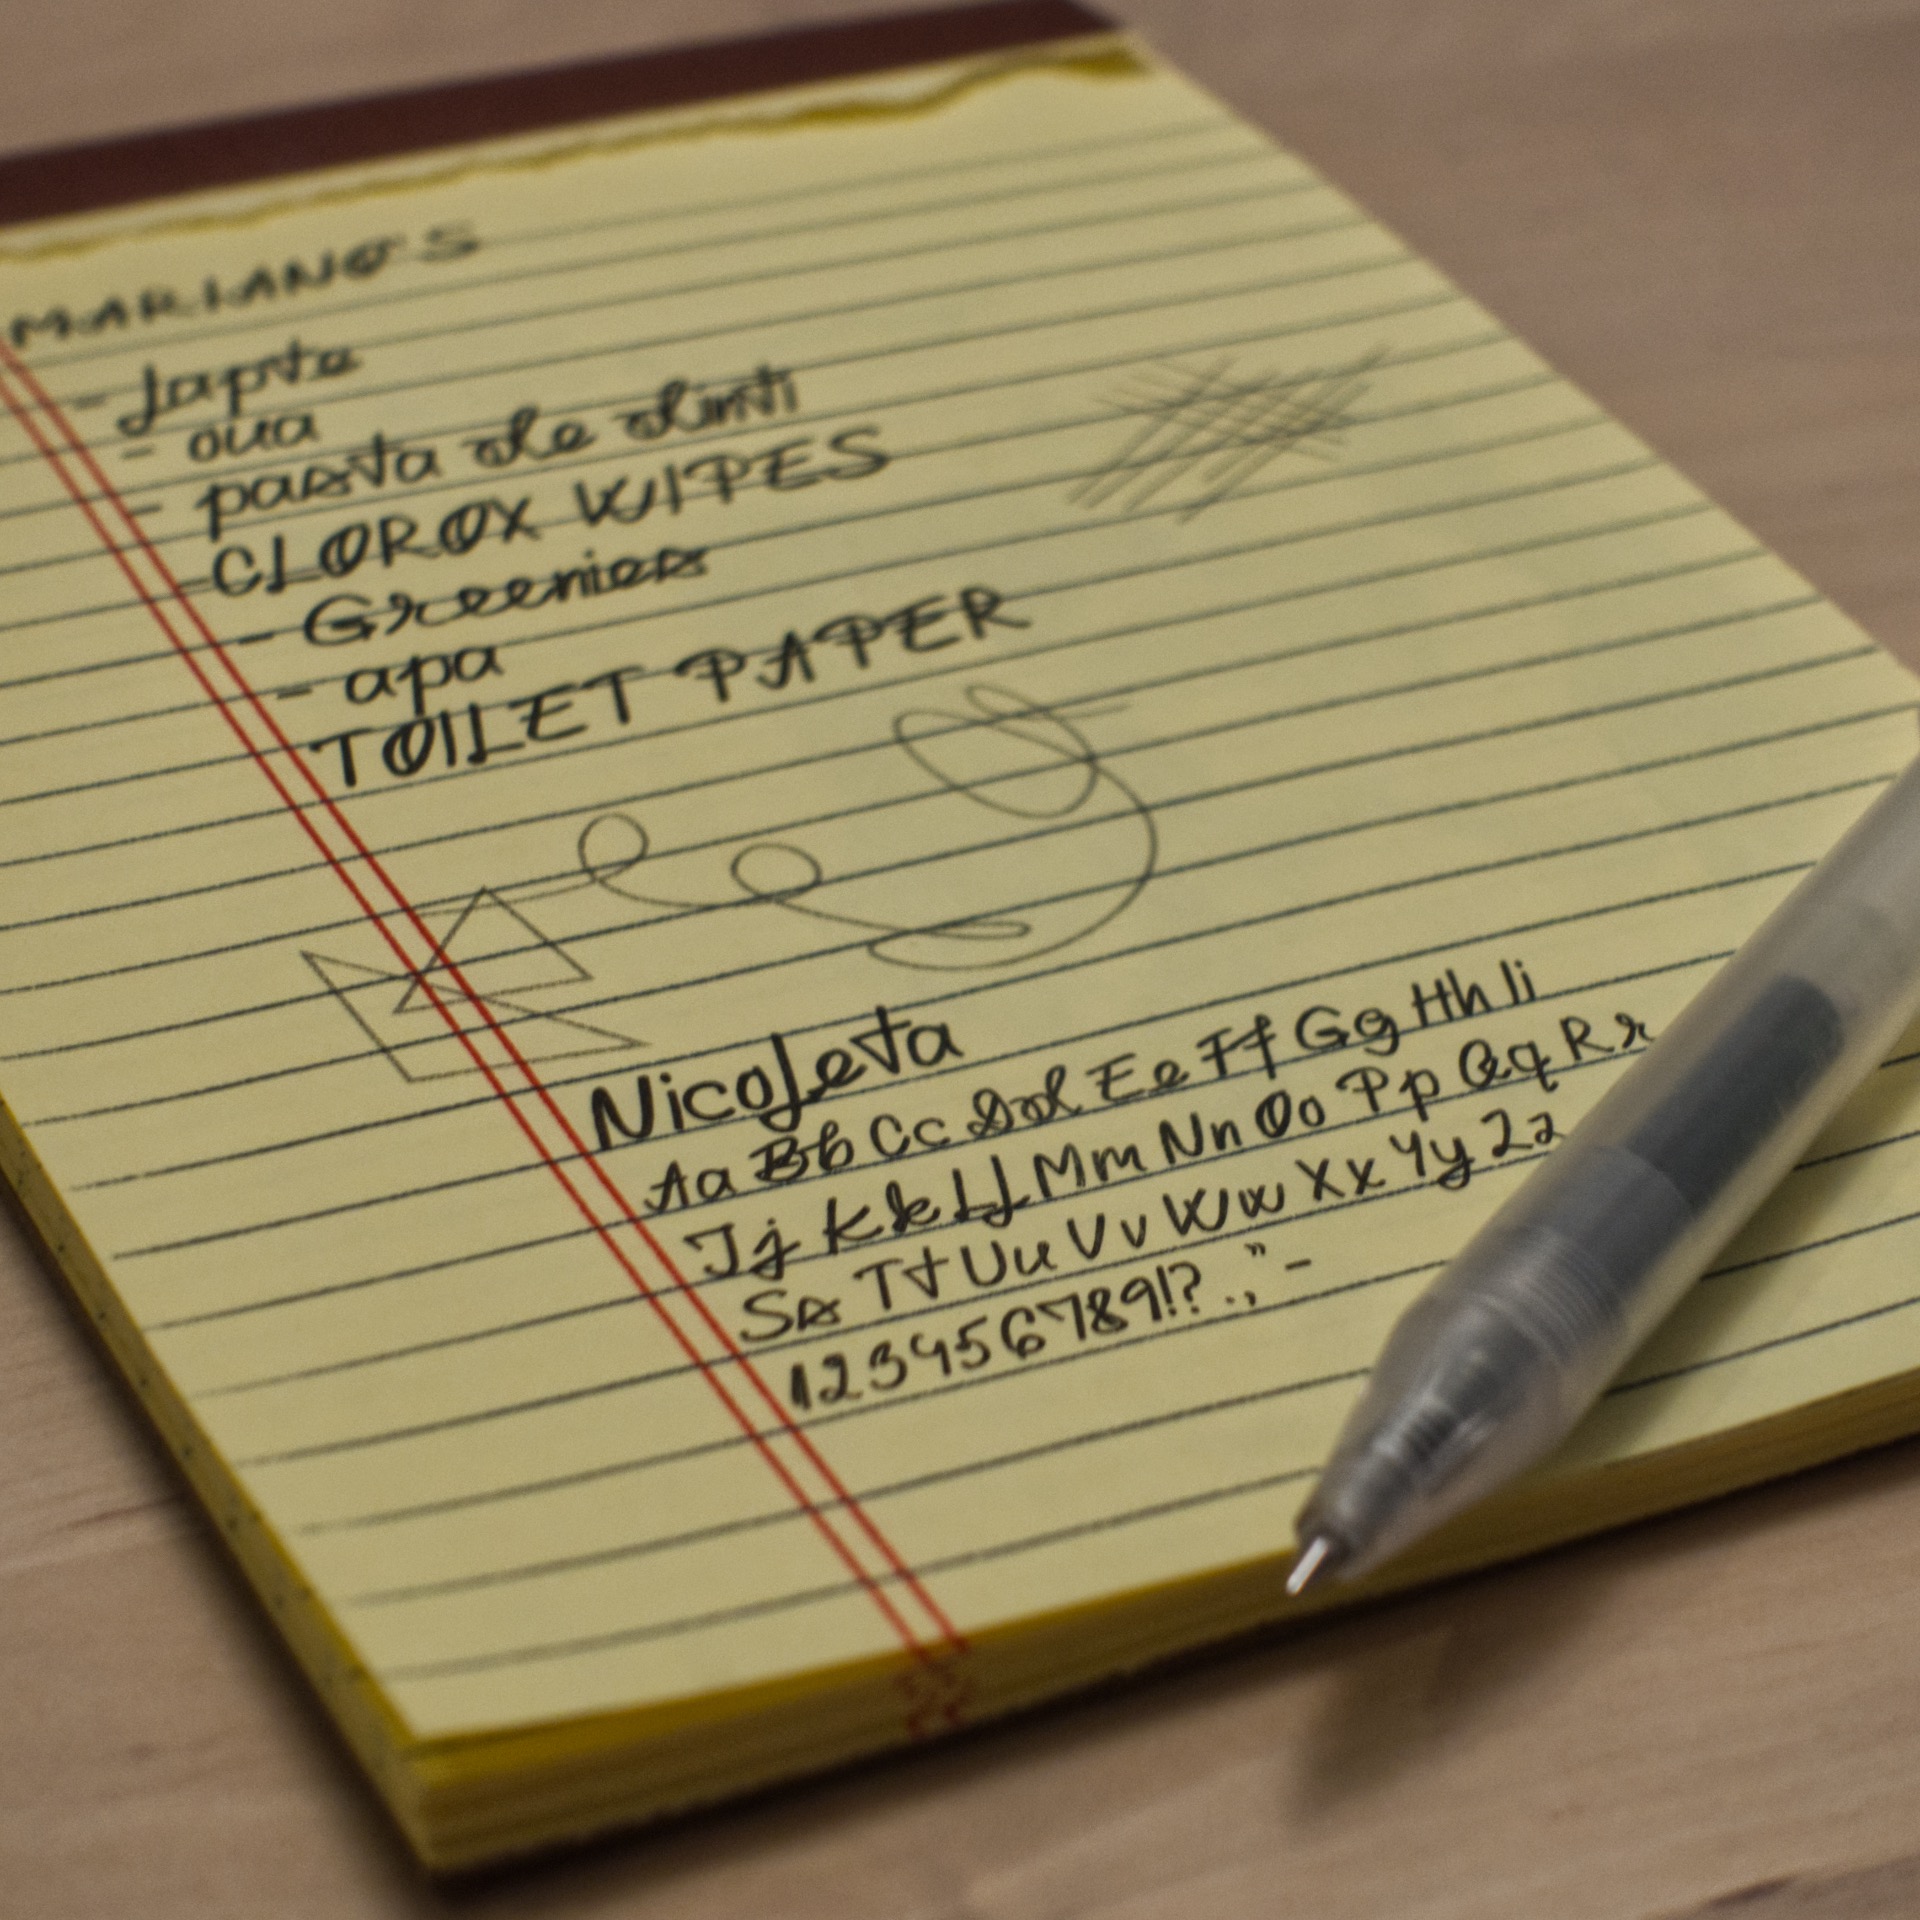 MARIANO'S
- lapte
- oua
- pasta de dinti
- CLOROX WIPES
- Greenies
- apa
TOILET PAPER
Nicoleta
Aa Bb Cc Dd Ee Ff Gg Hh Ii
Jj Kk Ll Mm Nn Oo Pp Qq Rr
Ss Tt Uu Vv Ww Xx Yy Zz
123456789!? . , " -